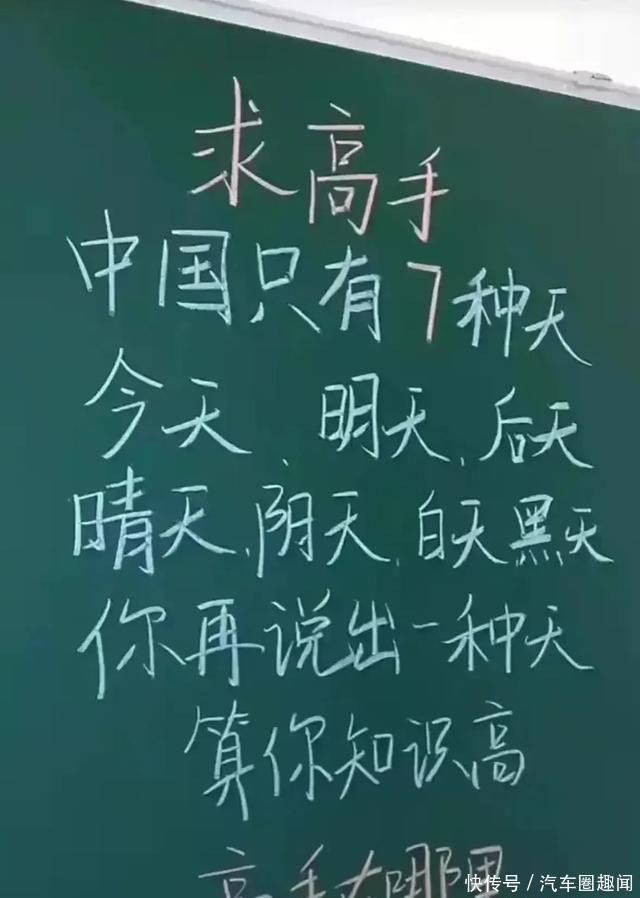 求高手
中国只有7种天
今天、明天、后天
晴天、阴天、白天黑天
你再说出一种天
算你知识高
高手在哪里
快传号／汽车圈趣闻